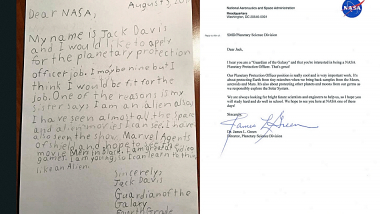 Dear NASA, August 3,
My name is Jack Davis
and I would like to apply
for the planetary protection
officer job. I may be nine but I
think I would be fit for the
job. One of the reasons is my
sister says I am an alien also
I have seen almost all the space
and alien movies I can see. I have
also seen the show Marvel Agents
of Shield and hope to see the
movie Men in Black. I am great at video
games. I am young, so I can learn to think
like an Alien.
Sincerely,
Jack Davis
Guardian of the
Galaxy
Fourth Grade
National Aeronautics and Space Administration
Headquarters
Washington, DC 20546-0001
NASA
SMD/Planetary Science Division
Dear Jack,
I hear you are a "Guardian of the Galaxy" and that you're interested in being a NASA
Planetary Protection Officer. That's great!
Our Planetary Protection Officer position is really cool and is very important work. It's
about protecting Earth from tiny microbes when we bring back samples from the Moon,
asteroids and Mars. It's also about protecting other planets and moons from our germs as
we responsibly explore the Solar System.
We are always looking for bright future scientists and engineers to help us, so I hope you
will study hard and do well in school. We hope to see you here at NASA one of these
days!
Sincerely,
James L. Green
Dr. James L. Green
Director, Planetary Science Division